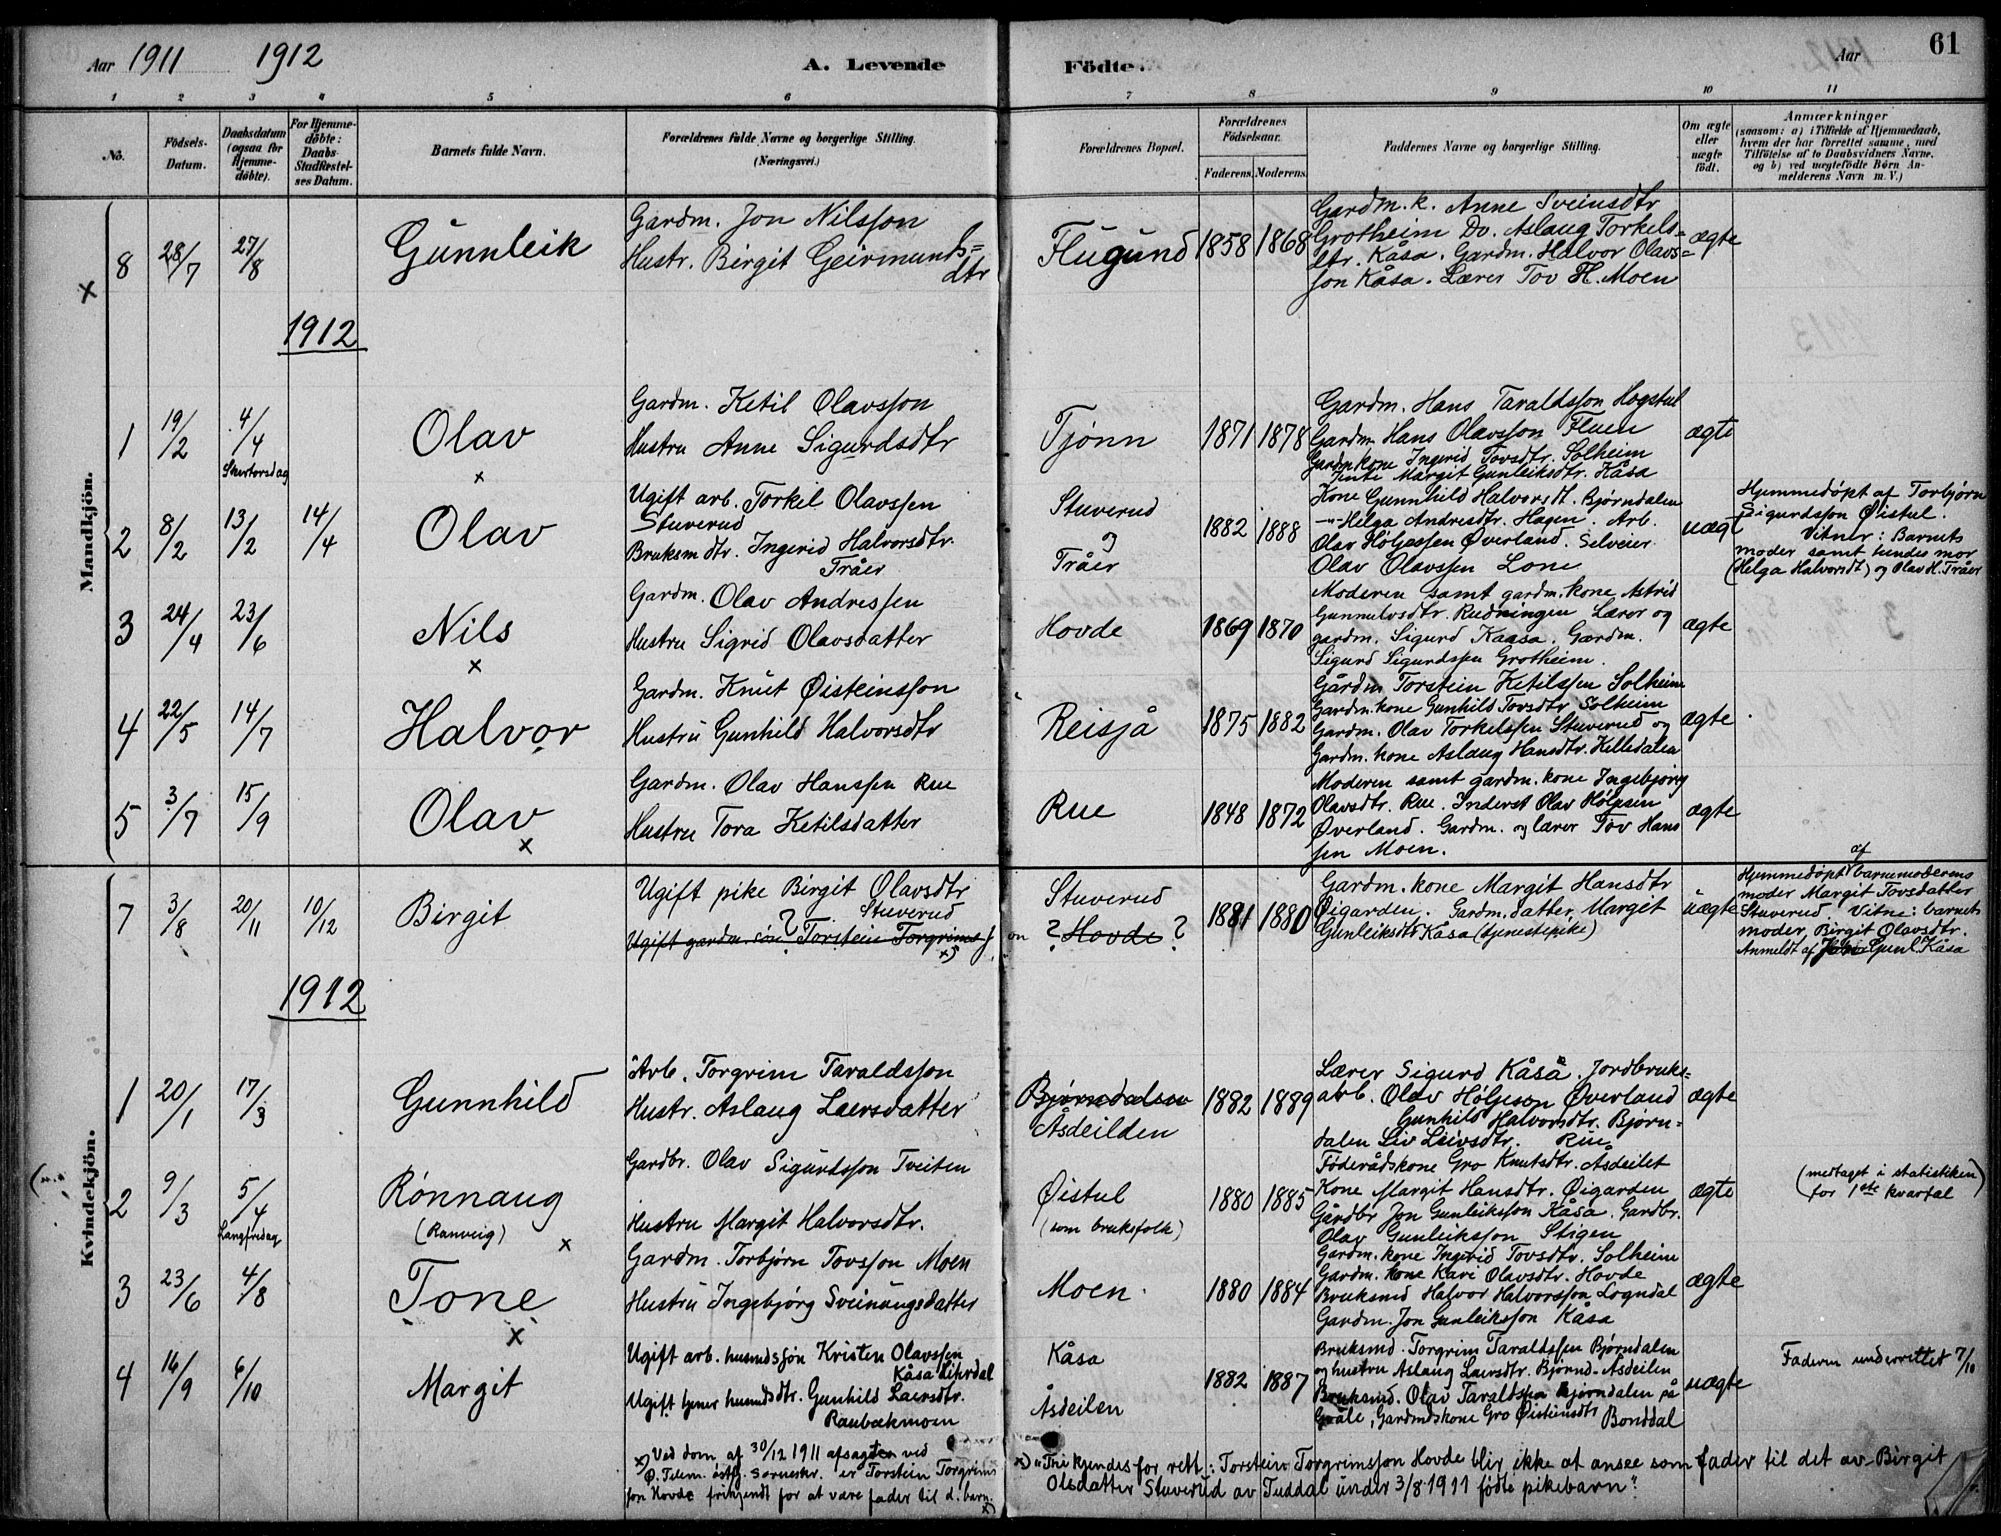 Aar 1911 1912 A. Levende Födte. Aar 61
1 2 3 4 5 6 7 8 9 10 11
No.
Födsels-Datum.
Daabsdatum (ogsaa for Hjemme-döbte).
For Hjemme-döbte: Daabs-Stadfæstel-ses Datum.
Barnets fulde Navn.
Forældrenes fulde Navne og borgerlige Stilling. (Næringsvei.)
Forældrenes Bopæl.
Forældrenes Födselsaar.
Faderens. Moderens.
Faddernes Navne og borgerlige Stilling.
Om ægte eller uægte födt.
Anmærkninger
(saasom: a) i Tilfælde af Hjemmedaab, hvem der har forrettet samme, med Tilföielse af to Daabsvidners Navne, og b) ved uægtefödte Börn An-melderens Navn m. V.)
Mandkjön.
8 28/7 27/8 Gunnleik
Gardm. Jon Nilsson
Hustr. Birgit Geirmunds=
dtr
Flugund 1858 1868
Gardm. k. Anne Sveinsdtr
Grotheim Do. Aslaug Torkels=
dtr. Kåsa. Gardm. Halvor Olavs=
son Kåsa. Lærer Tov H. Moen
ægte
x
1912
1 19/2 4/4 Skjærtorsdag Olav
x
Gardm. Ketil Olavsson
Hustru Anne Sigurdsdtr
Tjønn 1871 1878
Gardm. Hans Taraldsson Hogstul
Gardm Hans Olavsson Fluen
Gardmkone Ingerid Tovsdtr. Solheim
Jente Margit Gunleiksdtr. Kåsa
ægte
2 8/2 13/2 14/4 Olav
Ugift arb. Torkil Olavssen
Stuverud
Bruksm dtr. Ingerid Halvorsdtr.
Tråer
Stuverud
og
Tråer
1882 1888
Kone Gunnhild Halvorsdt. Bjørndalen
-"- Helga Andresdtr. Hagen. Arb.
Olav Holgessen Øverland. Selveier
Olav Olavssen Lone
uægt
Hjemmedøpt af Torbjørn
Sigurdsson Øistul.
Vitner: Barnets
moder samt hendes mor
(Helga Halvorsdt) og Olav H. Tråer
3 24/4 23/6 Nils
x
Gardm. Olav Andressen
Hustru Sigrid Olavsdatter
Hovde 1869 1870
Moderen samt gardm. kone Astrid
Gunnulvsdtr. Rudningen Læror og
gardm. Sigurd Kaasa. Gardm.
Sigurd Sigurdssen Grotheim.
ægte
4 22/5 14/7 Halvor
Gardm. Knut Øisteinsson
Hustru Gunhild Halvorsdtr
Reisjå 1875 1882
Gårdm Torstein Ketilssen Solheim
Gardm. kone Gunhild Tovsdtr Solheim
Gardm. Olav Torkelssen Stuverud og
Gardm. kone Aslaug Hansdtr. Killedalen
ægte
5 3/7 15/9 Olav
x
Gardm. Olav Hanssen Rue
Hustru Tora Ketilsdatter
Rue 1848 1872
Moderen samt gardm. kone Ingebjørg
Olavsdtr. Rue. Inderst Olav Hølgesen
Øverland. Gardm. og lærer Tov Hans
sen Moen.
ægte
Kvindekjön.
7 3/8 20/11 10/12 Birgit
Ugift pike Birgit Olavsdtr
Stuverud
Ugift gardm. søn ? Torstein Torgrimsson
x)
Stuverud
? Hovde ?
1881 1880
Gardm. kone Margit Hansdtr
Øigarden. Gardm. datter Margit
Gunleiksdtr Kåsa (tjenestepike)
uægte
Hjemmedøpt af barnemoderens
moder Margit Tovsdatter
Stuverud. Vitne: barnets
moder, Birgit Olavsdtr.
Anmeldt af Gunl. Kåsa
1912
1 20/1 17/3 Gunnhild
Arb. Torgrim Taraldsson
Hustr. Aslaug Laersdatter
Bjørndalen
Åsdeilden
1882 1889
Lærer Sigurd Kåså. Jordbruks=
arb. Olav Holgeson Øverland
Gunhild Halvorsdtr. Bjørn=
dalen Liv Leivsdtr. Rue
Føderådskone Gro Knutsdtr. Åsdeilet
ægte
2 9/3 5/4 Langfredag Rønnaug
(Ranveig)
x
Gardbr. Olav Sigurdsson Tveiten
Hustru Margit Halvorsdtr.
Øistul
(som bruksfolk)
1880 1885
Kone Margit Hansdtr. Øigarden
Gårdbr Jon Gunleiksson Kåsa. Gardbr.
Olav Gunleiksson Stigen
ægte
(medtaget i statistiken
for 1ste kvartal)
3 23/6 4/8 Tone
x
Gardm. Torbjørn Tovsson Moen
Hustru Ingebjørg Sveinungsdatter
Moen. 1880 1884
Gardm. kone Ingerid Tovsdtr. Solheim
Gardm. kone Kari Olavsdtr. Hovde
Bruksmd Halvor Halvorsson Løgndal
Gardm. Jon Gunleiksson Kåsa
ægte
4 16/9 6/10 Margit
Ugift arb. husmdssøn Kristen Olavssen
Kåsa Lifjrdal
Ugift tjener husmdsdtr. Gunhild Laersdtr.
Raubækmoen
Kåsa
Åsdeilen
1882 1887
Bruksmd. Torgrim Taraldssen Bjørndalen
og hustru Aslaug Laersdtr. Bjørnd. Åsdeilen
Bruksmd. Olav Taraldssen Bjørndalen på
Gvåle, Gardmdskone Gro Øisteinsdtr Bonddal
uægte
Faderen underrettet 7/10
x) Ved dom af 30/12 1911 afsagten ved
Ø. Telem. østfj. sorenskr. er Torstein Torgrims
son Hovde frikjendt for at være fader til d. barn.
x)
x) "Thi kjendes for rett: Torstein Torgrimsson Hovde blir ikke at ansee som fader til det av Birgit
Olsdatter Stuverud av Tuddal under 3/8 1911 fødte pikebarn".